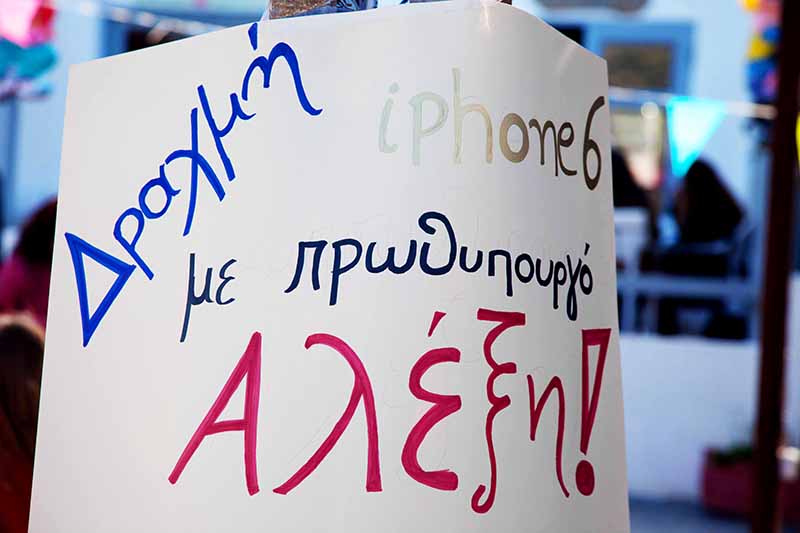 Δραχμή
iphone6
με πρωθυπουργό
Αλέξη!